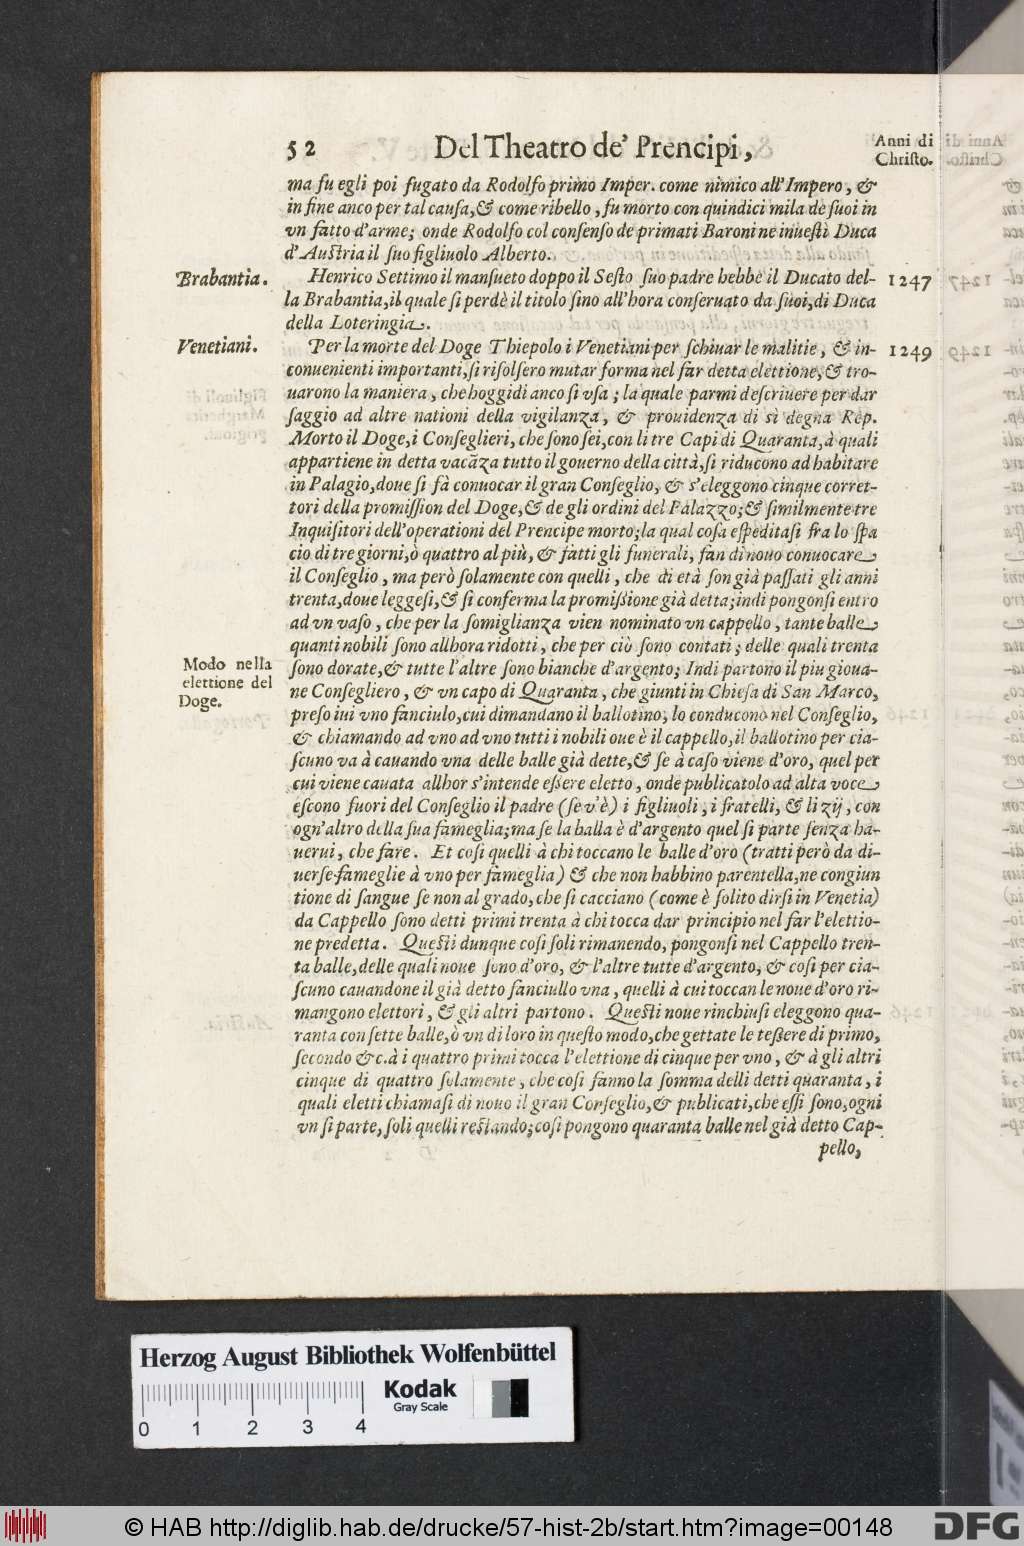 52 Del Theatro de' Prencipi, Anni di Christo.
ma fu egli poi fugato da Rodolfo primo Imper. come nimico all'Impero, &
in fine anco per tal causa, & come ribello, fu morto con quindici mila de suoi in
vn fatto d'arme; onde Rodolfo col consenso de primati Baroni ne inuestì Duca
d'Austria il suo figliuolo Alberto.
Brabantia. Henrico Settimo il mansueto doppo il Sesto suo padre hebbe il Ducato del- 1247
la Brabantia, il quale si perdè il titolo sino all'hora conseruato da suoi, di Duca
della Loteringia.
Venetiani. Per la morte del Doge Thiepolo i Venetiani per schiuar le malitie, & in- 1249
conuenienti importanti, si risolsero mutar forma nel far detta elettione, & tro-
uarono la maniera, che hoggidi anco si vsa; la quale parmi descriuere per dar
saggio ad altre nationi della vigilanza, & prouidenza di sì degna Rep.
Morto il Doge, i Conseglieri, che sono sei, con li tre Capi di Quaranta, à quali
appartiene in detta vacãza tutto il gouerno della città, si riducono ad habitare
in Palagio, doue si fà conuocar il gran Conseglio, & s'eleggono cinque corret-
tori della promission del Doge, & de gli ordini del Palazzo; & similmente tre
Inquisitori dell'operationi del Prencipe morto; la qual cosa espeditasi fra lo spa
cio di tre giorni, ò quattro al più, & fatti gli funerali, fan di nouo conuocare
il Conseglio, ma però solamente con quelli, che di età son già passati gli anni
trenta, doue leggesi, & si conferma la promissione già detta; indi pongonsi entro
ad vn vaso, che per la somiglianza vien nominato vn cappello, tante balle
quanti nobili sono allhora ridotti, che per ciò sono contati; delle quali trenta
Modo nella elettione del Doge.
sono dorate, & tutte l'altre sono bianche d'argento; Indi partono il piu gioua-
ne Consegliero, & vn capo di Quaranta, che giunti in Chiesa di San Marco,
preso iui vno fanciulo, cui dimandano il ballotino, lo conducono nel Conseglio,
& chiamando ad vno ad vno tutti i nobili oue è il cappello, il ballotino per cia-
scuno va à cauando vna delle balle già dette, & se à caso viene d'oro, quel per
cui viene cauata allhor s'intende essere eletto, onde publicatolo ad alta voce
escono fuori del Conseglio il padre (se v'è) i figliuoli, i fratelli, & li zij, con
ogn'altro della sua fameglia; ma se la balla è d'argento quel si parte senza ha-
uerui, che fare. Et così quelli à chi toccano le balle d'oro (tratti però da di-
uerse fameglie à vno per fameglia) & che non habbino parentella, ne congiun
tione di sangue se non al grado, che si cacciano (come è solito dirsi in Venetia)
da Cappello sono detti primi trenta à chi tocca dar principio nel far l'elettio-
ne predetta. Questi dunque cosi soli rimanendo, pongonsi nel Cappello tren-
ta balle, delle quali noue sono d'oro, & l'altre tutte d'argento, & cosi per cia-
scuno cauandone il già detto fanciullo vna, quelli à cui toccan le noue d'oro ri-
mangono elettori, & gli altri partono. Questi noue rinchiusi eleggono qua-
ranta con sette balle, ò vn di loro in questo modo, che gettate le tessere di primo,
secondo &c. à i quattro primi tocca l'elettione di cinque per vno, & à gli altri
cinque di quattro solamente, che cosi fanno la somma delli detti quaranta, i
quali eletti chiamasi di nouo il gran Conseglio, & publicati, che essi sono, ogni
vn si parte, soli quelli restando; cosi pongono quaranta balle nel già detto Cap-
pello,
Herzog August Bibliothek Wolfenbüttel
Kodak
Gray Scale
0 1 2 3 4
© HAB http://diglib.hab.de/drucke/57-hist-2b/start.htm?image=00148
DFG